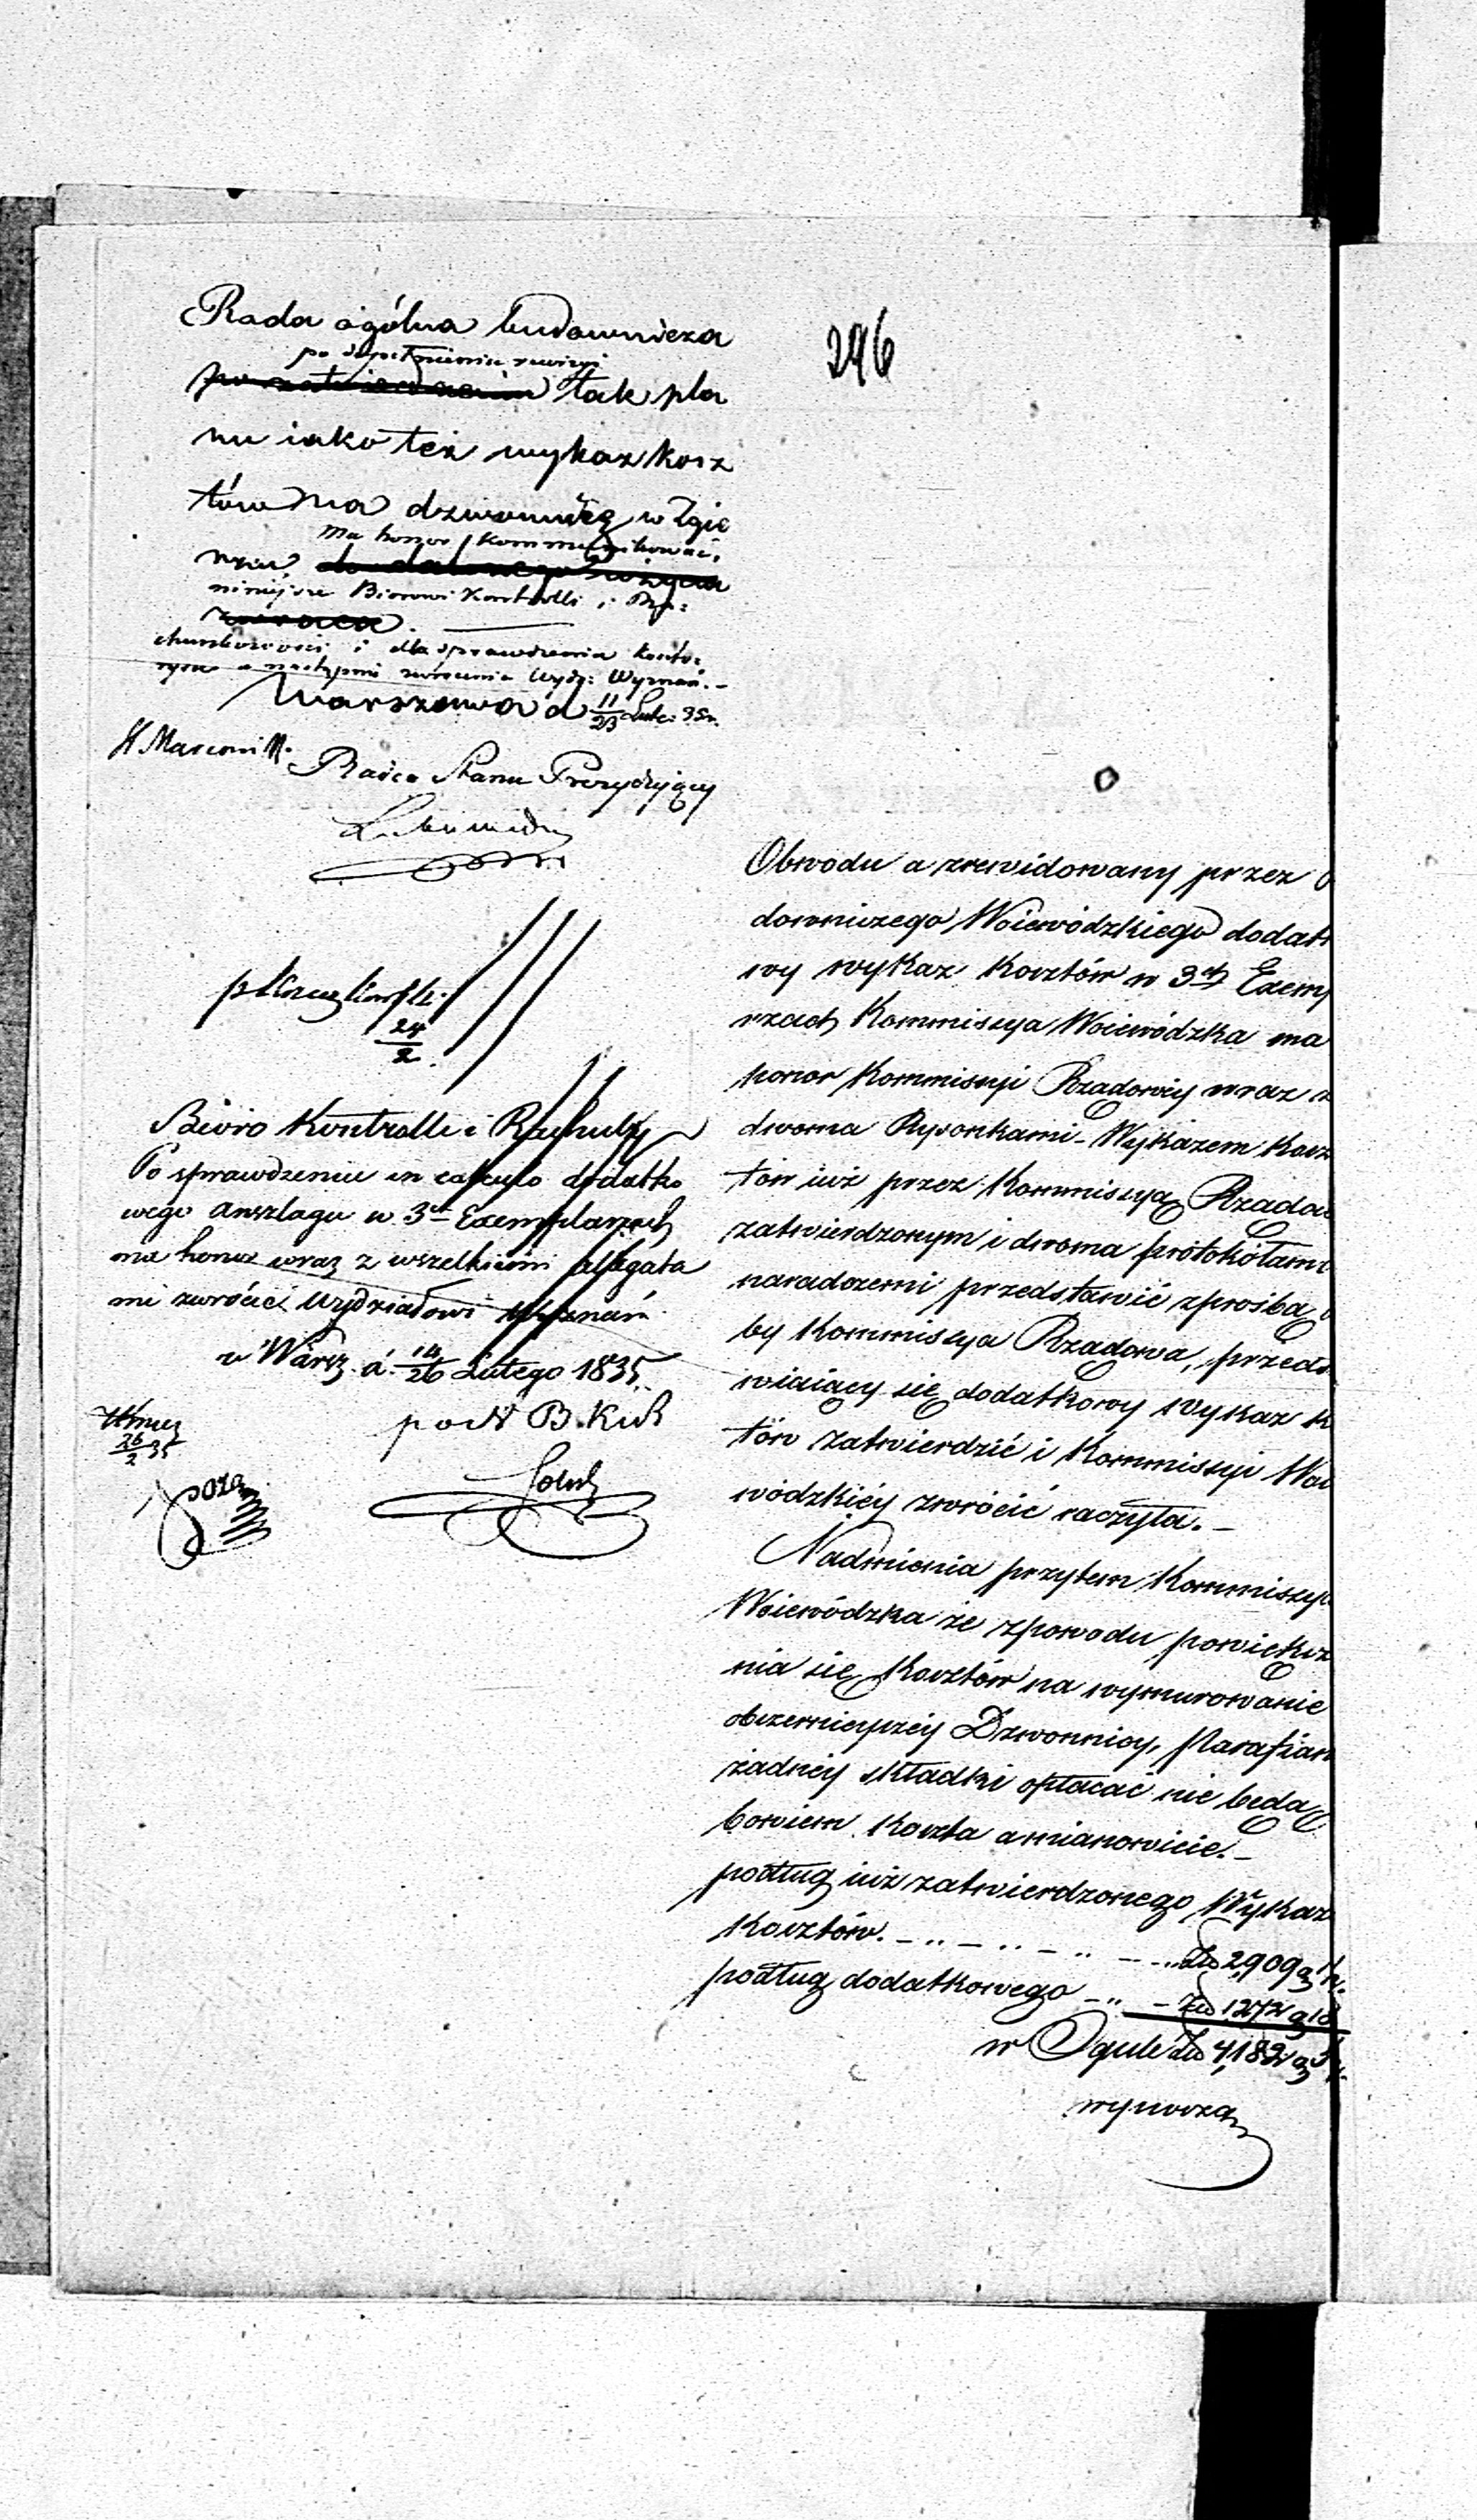 296
Rada ogólna budownicza
po dopełnieniu rewizyi
po zatwierdzeniu tak pla
nu iako też wykaz kosz
tów na dzwonnicę w Zgie
ma honor kommunikować,
rzu,
niniejsze Biorowi Kontrolli i Ra:
zwraca.
chunkowości i dla sprawdzenia
a następnie zwrócenia Wydz: Wyznań.-
Warszawa d 11/23 Lute: 35r.
H Marconi
Radca Stanu Prezydujący
24/2
Bióro Kontrolli i Rachuby
Po sprawdzeniu in calculo dodatko
wego anszlagu w 3ch Exemplarzach
ma honor wraz z wszelkiemi allegata
mi zwrócić Wydziałowi Wyznań
w Warsz. d. 14/26 Lutego 1835.
26/2 35
Obwodu a zrewidowany przez
downiczego Woiewódzkiego dodatk
wy wykaz kosztów w 3ch Exemp
rzach Kommissya Woiewódzka ma
honor Kommissyi Rządowéy wraz z
dwoma Rysonkami - Wykazem kosz
tów iuż przez Kommissyą Rządow
zatwierdzonym i dwoma protokółami
naradczemi przedstawić z prośbą
by Kommissya Rządowa, przeds
wiaiący się dodatkowy wykaz k
tów zatwierdzić i Kommissyi Woi
wódzkiéy zwrócić raczyła.-
Nadmienia przytem Kommissya
Woiewódzka że z powodu powiększ
nia się kosztów na wymurowanie
obszernieyszéy Dzwonnicy, Parafian
żadnéy składki opłacać nie będą
bowiem koszta a mianowicie.-
podług iuż zatwierdzonego Wykaz
kosztów. - .. - .. - .. - .. Złp 2,909 g
podług dodatkowego - .. - Złp 1,272 g 18
w Ogule Złp 4,182 g
wynoszą